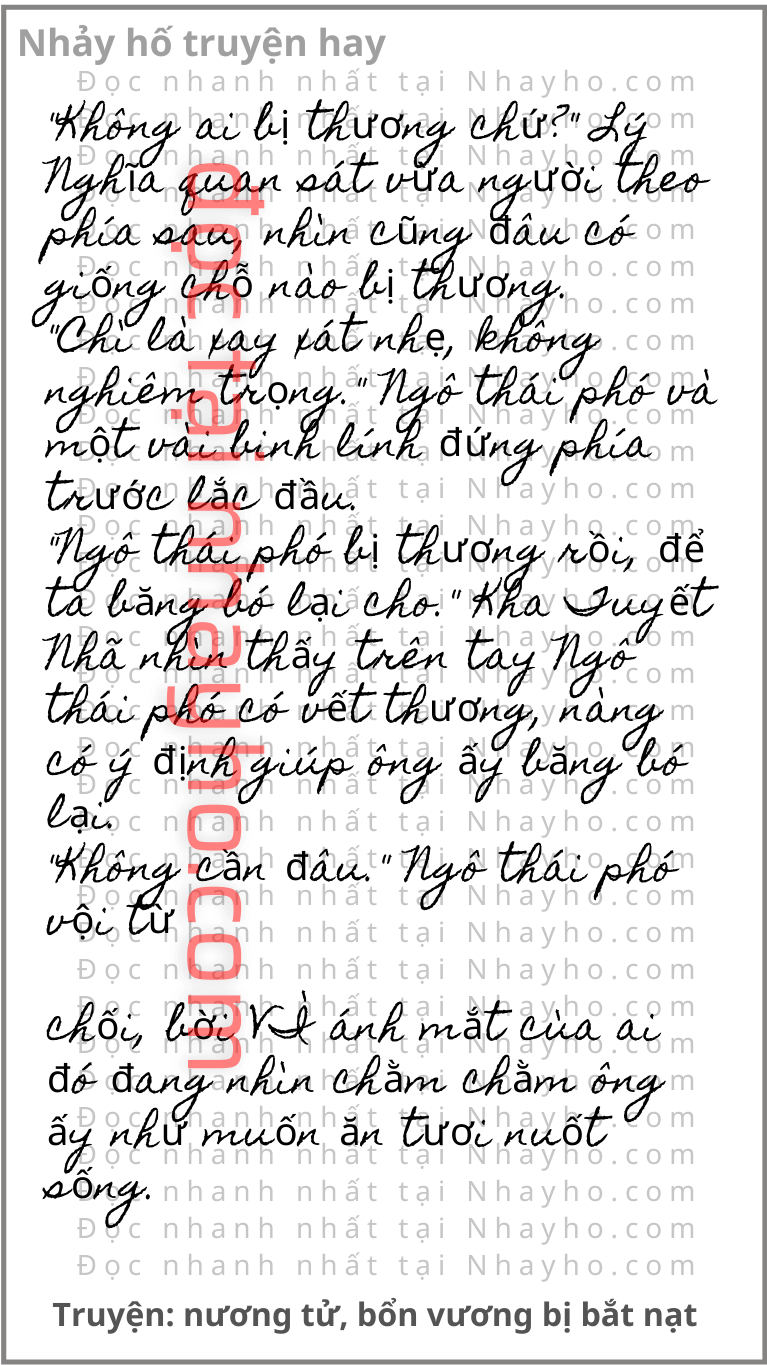 Nhảy hố truyện hay
Đọc nhanh nhất tại Nhayho.com
"Không ai bị thương chứ?" Lý
Nghĩa quan sát vừa người theo
phía sau, nhìn cũng đâu có
giống chỗ nào bị thương.
"Chỉ là xay xát nhẹ, không
nghiêm trọng." Ngô thái phó và
một vài binh lính đứng phía
trước lắc đầu.
"Ngô thái phó bị thương rồi, để
ta băng bó lại cho." Kha Tuyết
Nhã nhìn thấy trên tay Ngô
thái phó có vết thương, nàng
có ý định giúp ông ấy băng bó
lại.
"Không cần đâu." Ngô thái phó
vội từ
chối, bởi VÌ ánh mắt của ai
đó đang nhìn chằm chằm ông
ấy như muốn ăn tươi nuốt
sống.
đọc tại nhayho.com
Truyện: nương tử, bổn vương bị bắt nạt